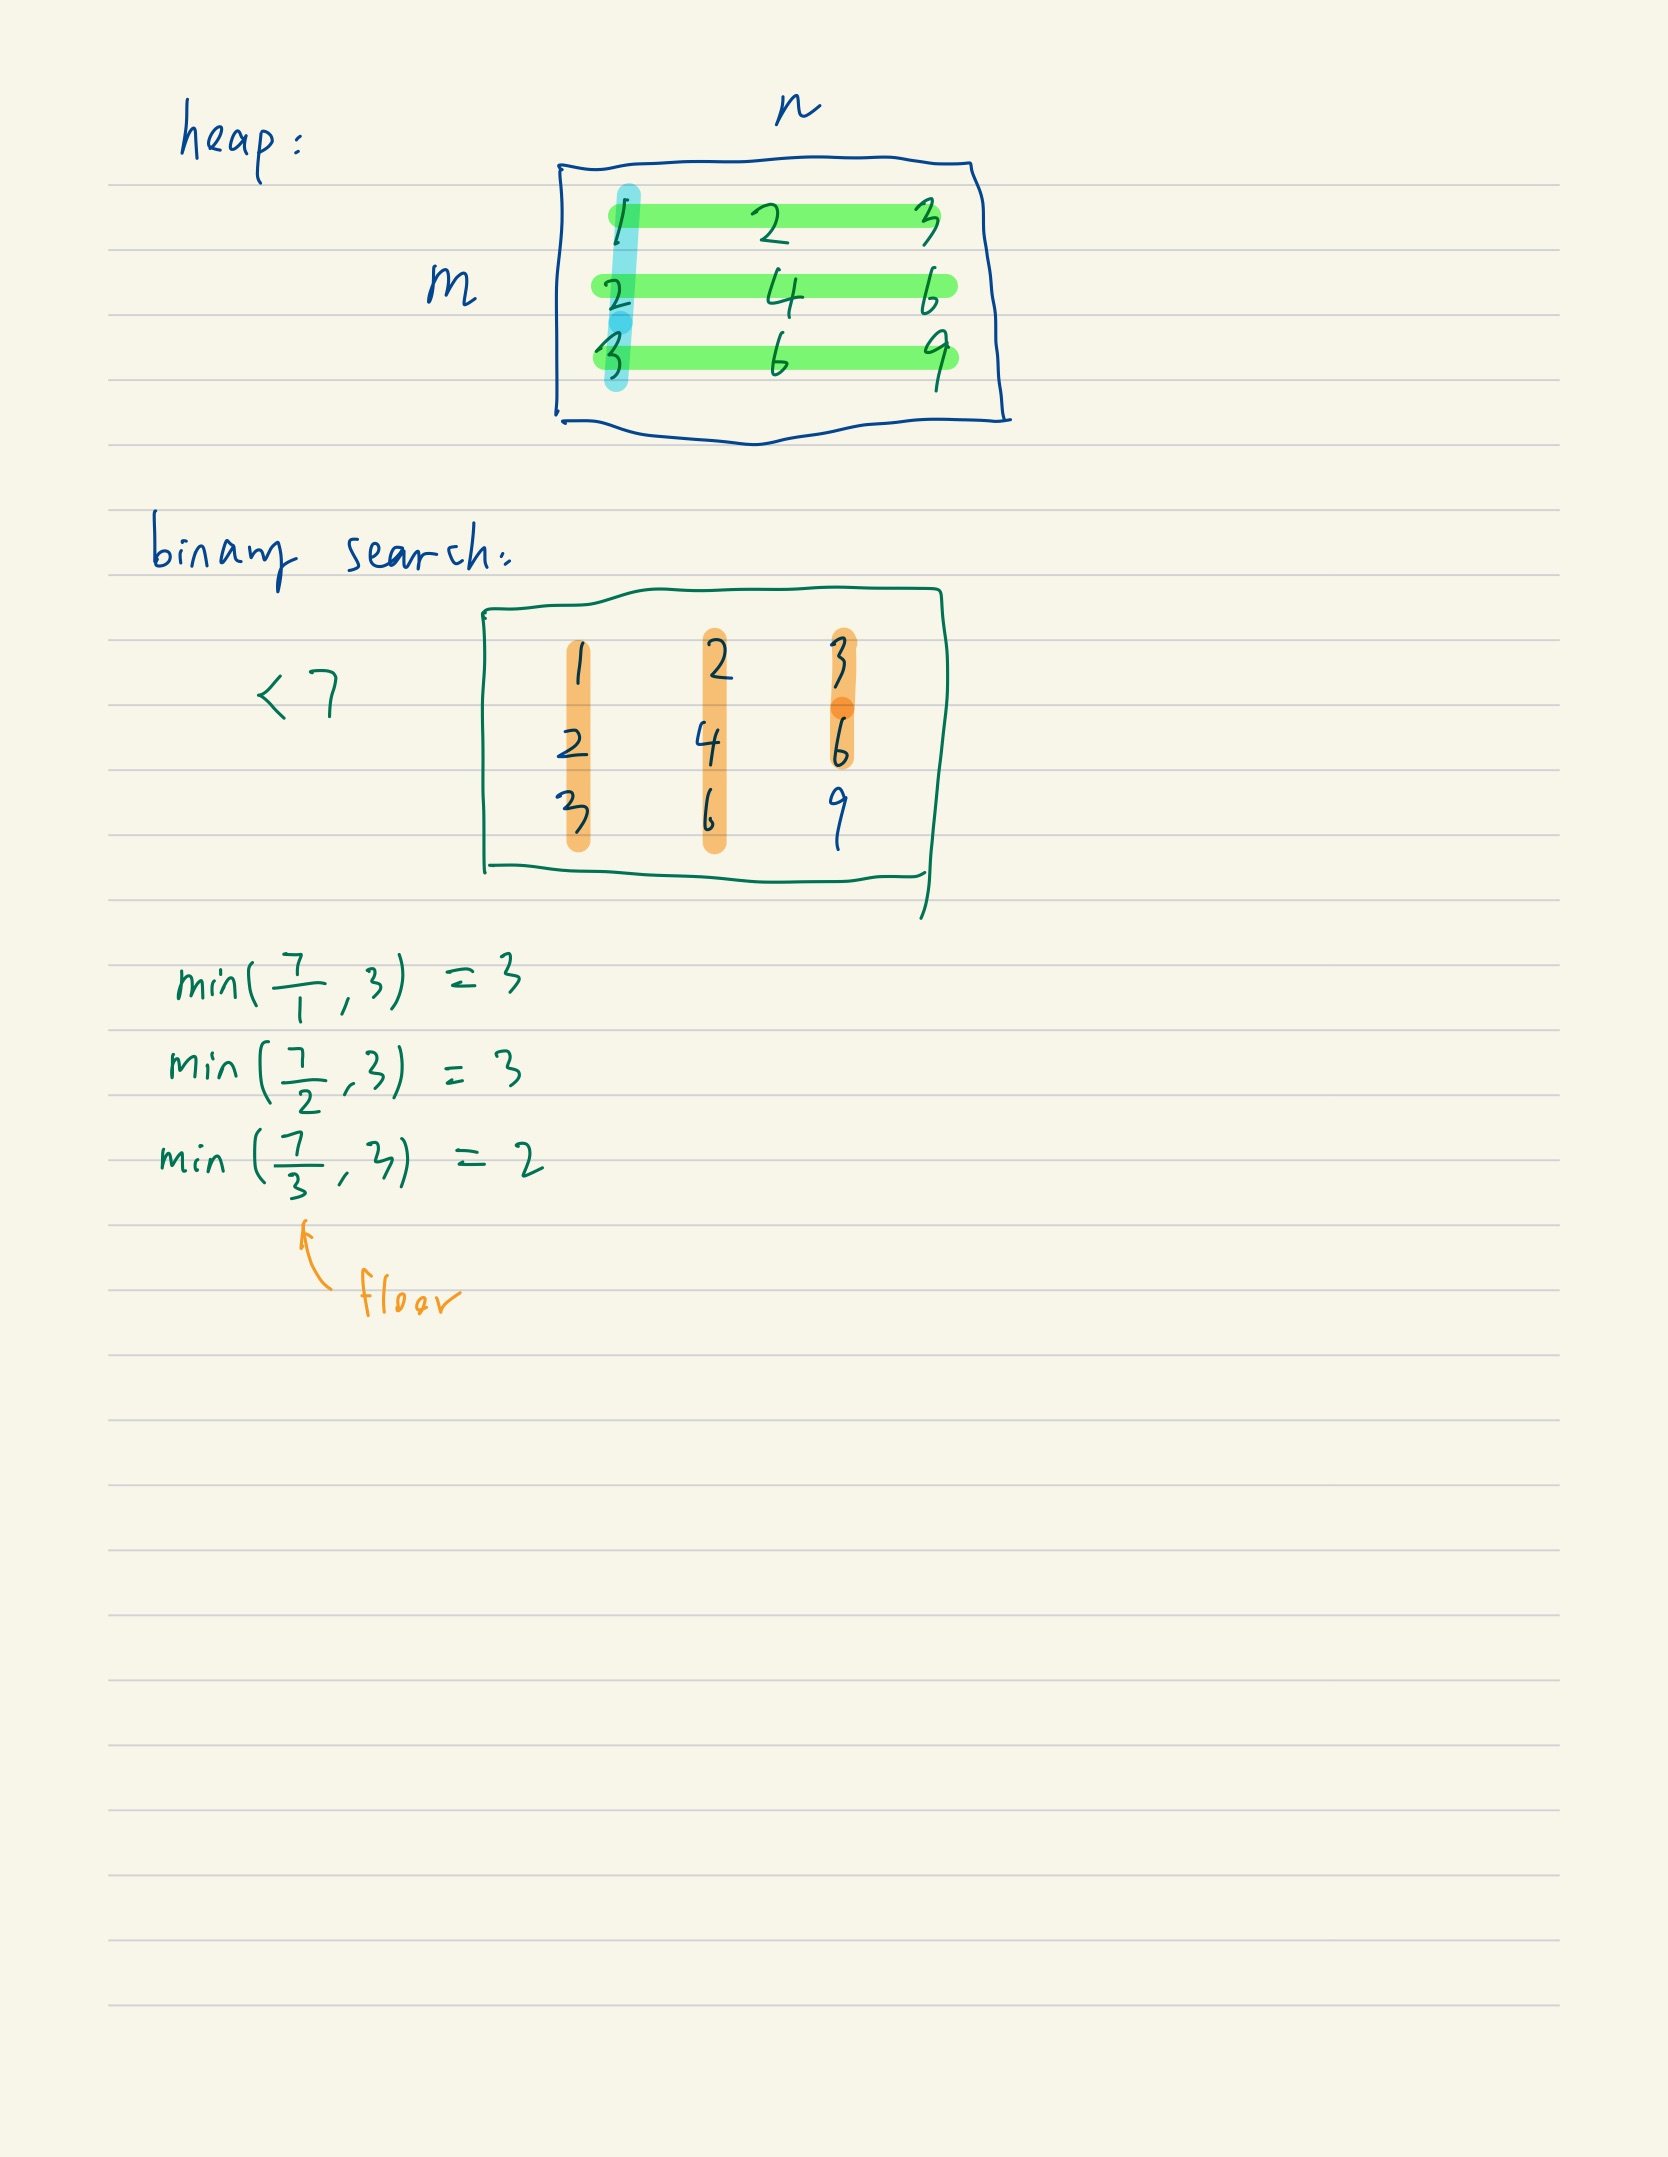 heap:
n
1 2 3
m
2 4 6
3 6 9
binary search:
1 2 3
< 7
2 4 6
3 6 9
min(7/1, 3) = 3
min(7/2, 3) = 3
min(7/3, 3) = 2
floor